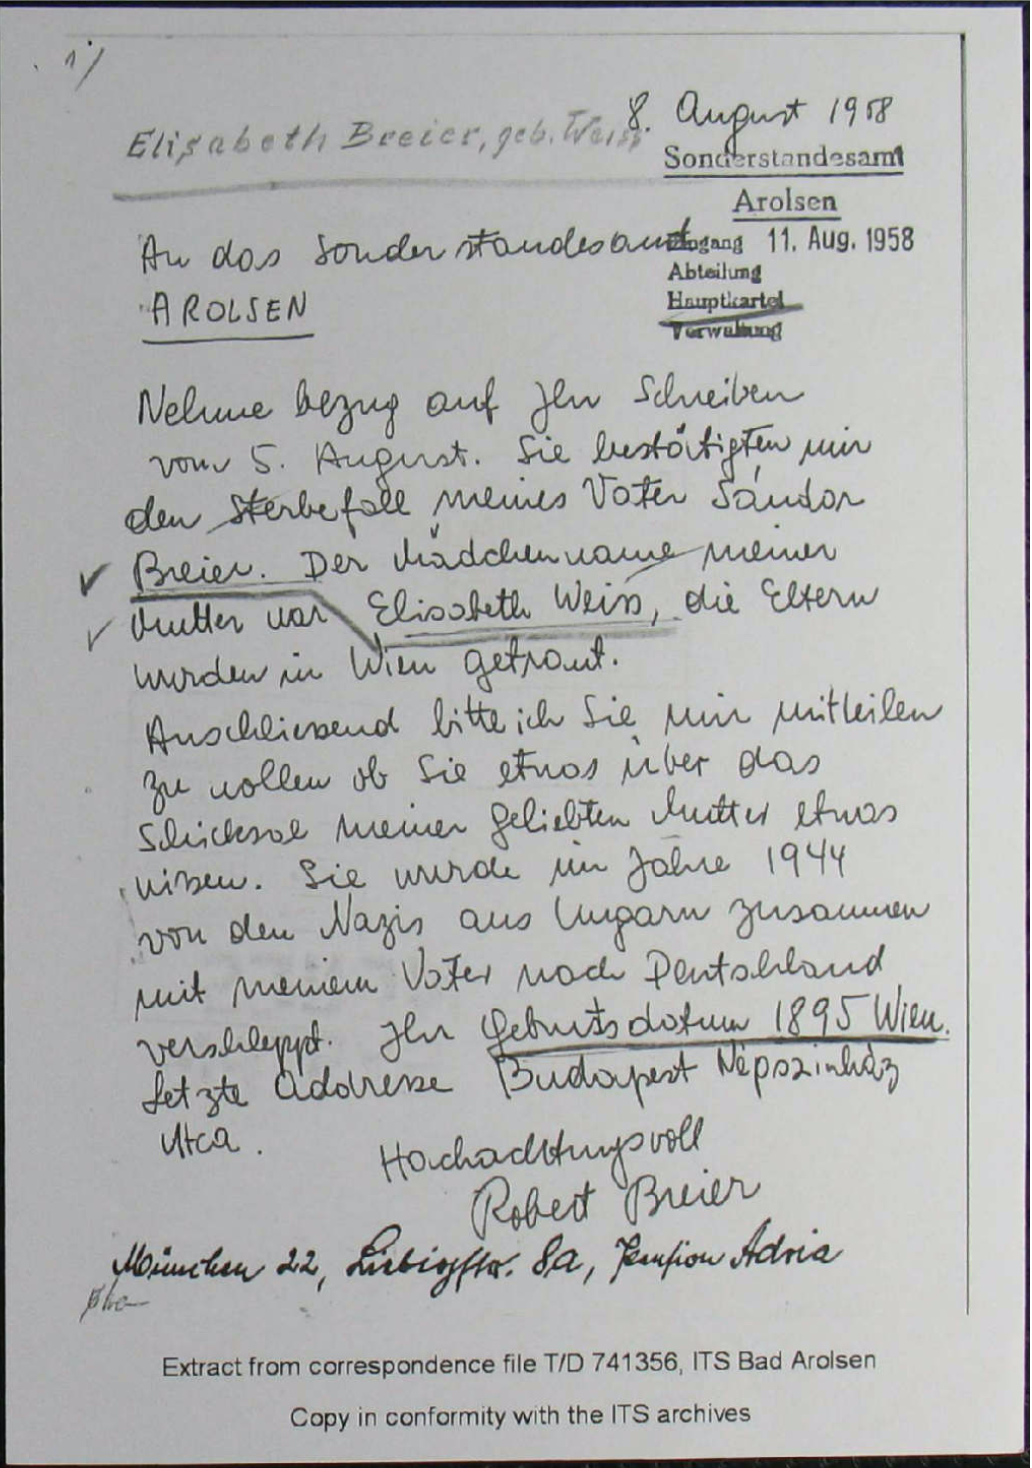 1)
8. August 1958
Elisabeth Breier, geb. Weiss
Sonderstandesamt
Arolsen
An das Sonderstandesamt
Eingang 11. Aug. 1958
Abteilung
AROLSEN
Hauptkartei
Verwaltung
Nehme bezug auf Ihr Schreiben
vom 5. August. Sie bestätigten mir
den Sterbefall meines Vater Sándor
Breier. Der Mädchenname meiner
Mutter war Elisabeth Weiss, die Eltern
wurden in Wien getraut.
Anschliessend bitte ich Sie mir mitteilen
zu wollen ob Sie etwas über das
Schicksal meiner geliebten Mutter etwas
wissen. Sie wurde im Jahre 1944
von den Nazis aus Ungarn zusammen
mit meinem Vater nach Deutschland
verschleppt. Ihr Geburtsdatum 1895 Wien.
Letzte Addresse Budapest Népszinház
Utca.
Hochachtungsvoll
Robert Breier
München 22, Liebigstr. 8a, Pension Adria
Extract from correspondence file T/D 741356, ITS Bad Arolsen
Copy in conformity with the ITS archives